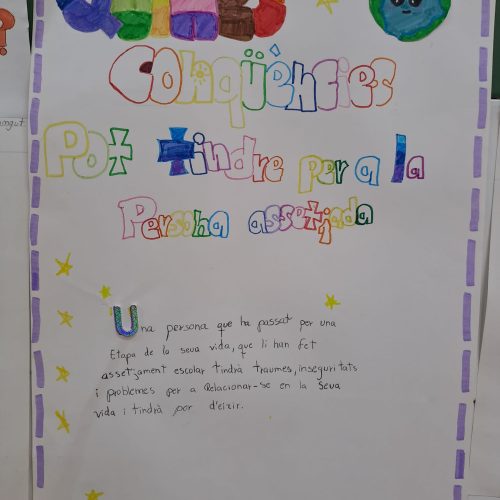 Conqüències
Pot tindre per a la
Persona assetjada
Una persona que ha passat per una
Etapa de la seua vida, que li han fet
assetjament escolar tindrà traumes, inseguritats
i problemes per a Relacionar-se en la Seua
vida i tindrà por d'eixir.